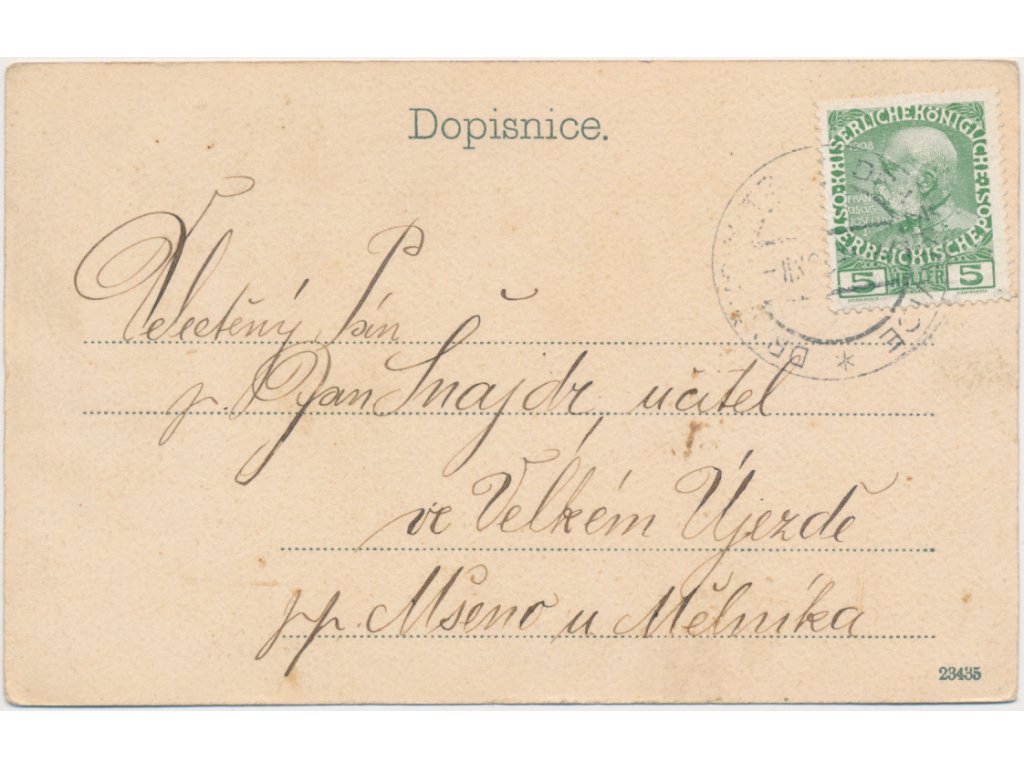 Dopisnice.
KAISERLICHE KÖNIGLICHE ÖSTERREICHISCHE POST
1908
5 HELLER 5
Velectěný Pán
p. Jan Šnajdr, učitel
ve Velkém Újezdě
pp. Mšeno u Mělníka
23435